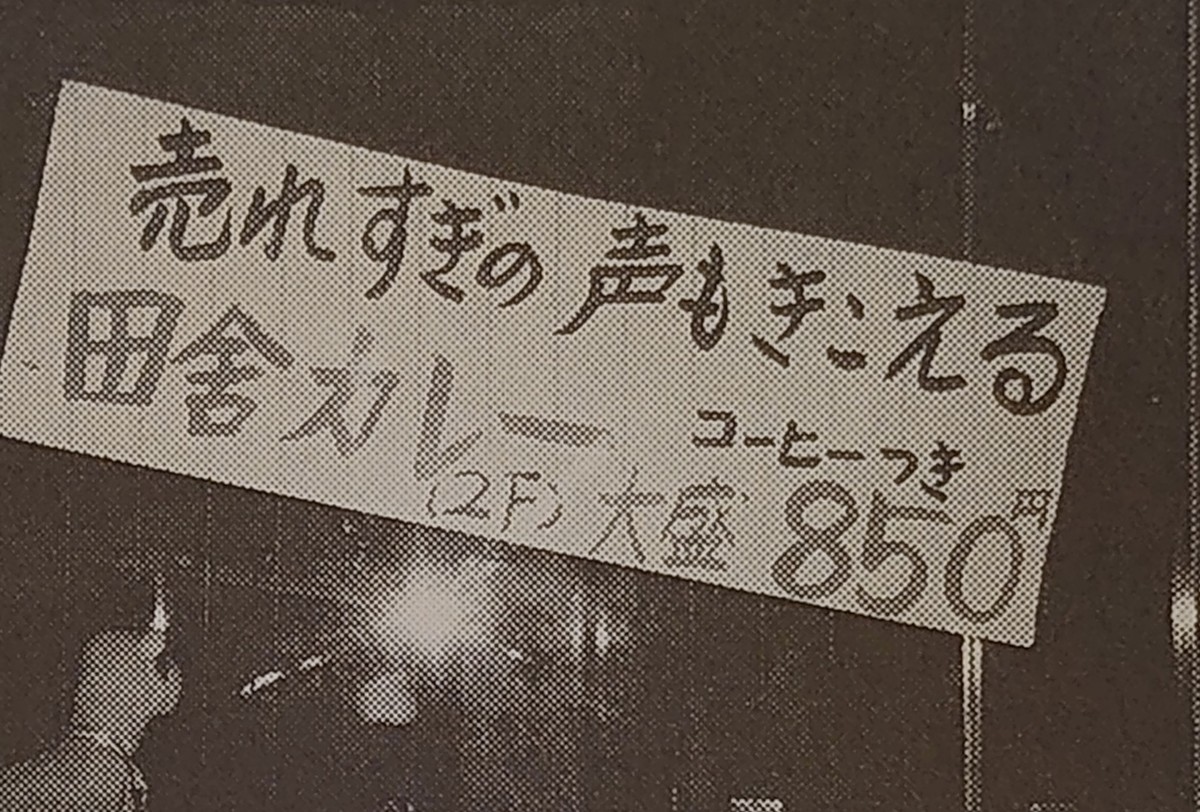 売れすぎの声もきこえる
田舎カレー コーヒーつき
(2F) 大盛 850円